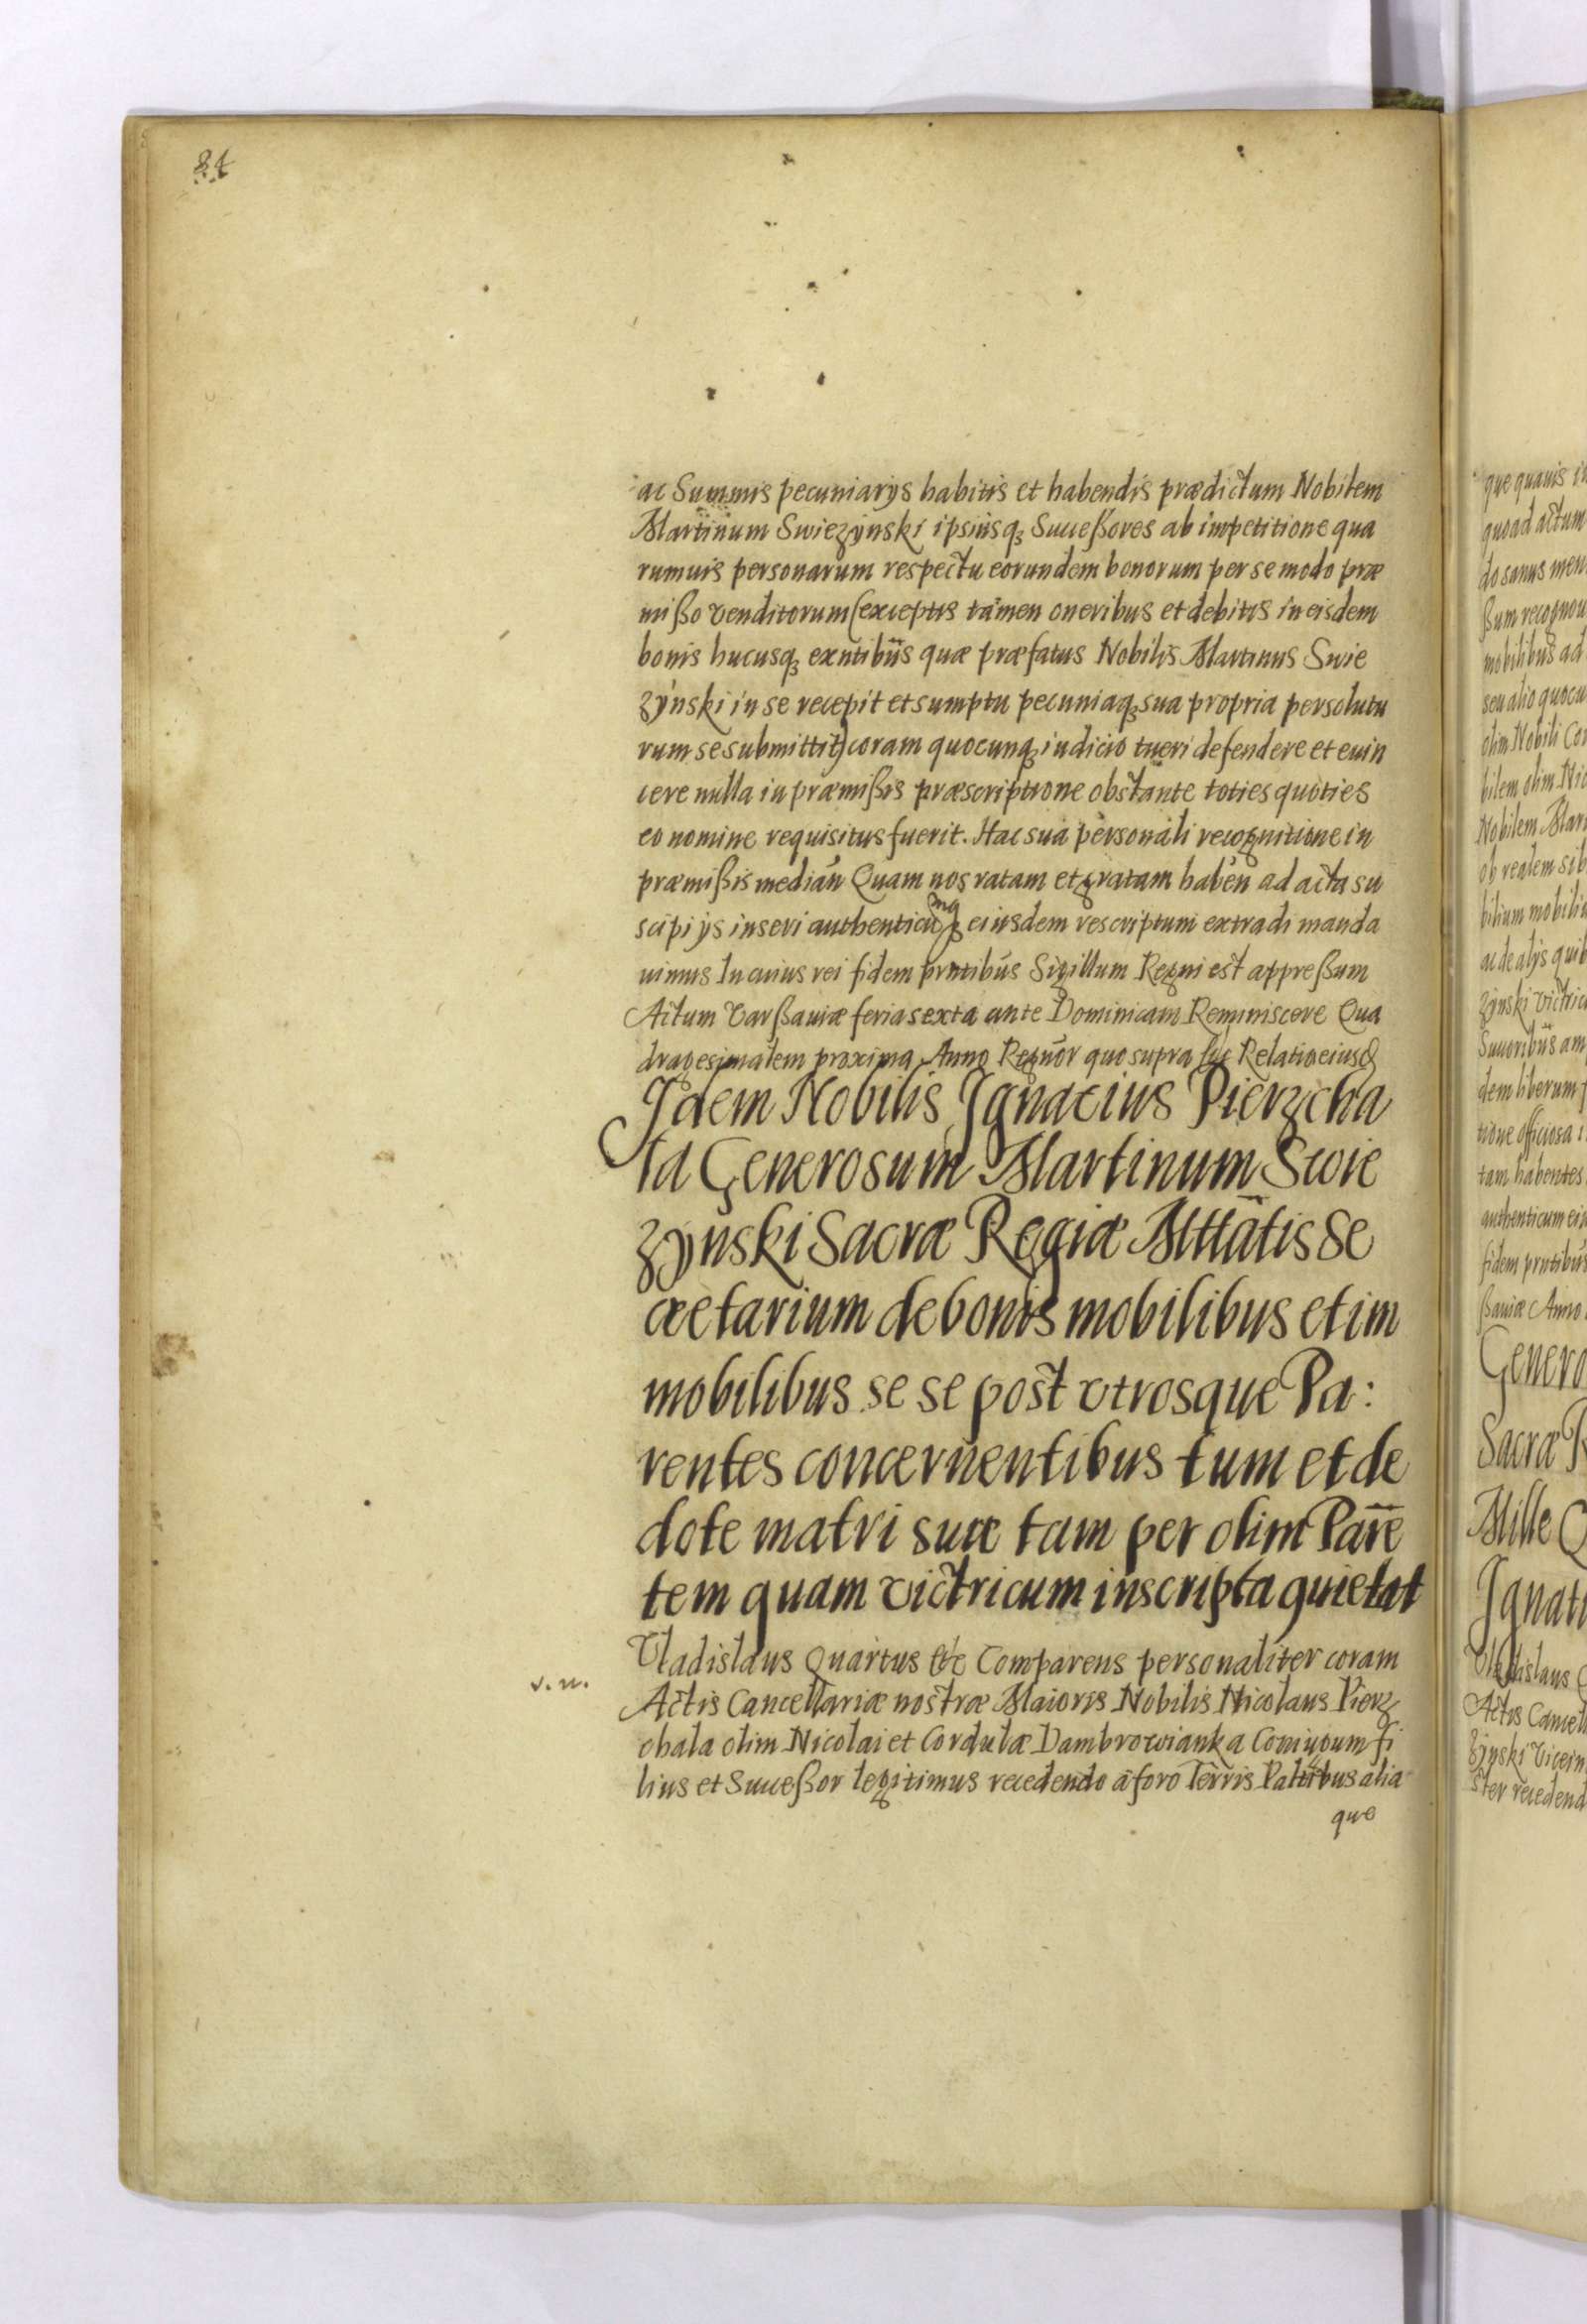 84
ac Summis pecuniarijs habitis et habendis prædictum Nobilem
Martinum Swiezynski ipsiusq₃ Successores ab impetitione qua
rumuis personarum respectu eorundem bonorum per se modo præ
mißo venditorum (exceptis tamen oneribus et debitis in eisdem
bonis hucusq₃ exñtibus quæ præfatus Nobilis Martinus Swie
zynski in se recepit et sumptu pecuniaq₃ sua propria persolutu
rum se submittit) coram quocunq₃ iudicio tueri defendere et euin
cere nulla in præmißis præscriptione obstante toties quoties
eo nomine requisitus fuerit. Hac sua personali recognitione in
præmißis mediañ Quam nos ratam et gratam habeñ ad acta su
scipi ijs inseri authenticumq₃ eiusdem rescriptum extradi manda
uimus In cuius rei fidem prntibus Sigillum Regni est appreßum
Actum Varßauiæ feria sexta ante Dominicam Reminiscere Qua
dragesimalem proxima Anno Regnor quo supra Relatio eiusd
Idem Nobilis Ignatius Pierzcha
la Generosum Martinum Swie
zynski Sacræ Regiæ Mttatis Se
cretarium de bonis mobilibus et im
mobilibus se se post vtrosque Pa:
rentes concernentibus tum et de
dote matri suæ tam per olim Parē
tem quam victricum inscripta quietat
v. n.
Vladislaus Quartus &c Comparens personaliter coram
Actis Cancellariæ nostræ Maioris Nobilis Nicolaus Pierz
chala olim Nicolai et Cordulæ Dambrowianka Coniugum fi
lius et Succeßor legitimus recedendo á foro Terris Paltibus alia
que
que quauis in
quoad actum
do sanus men
ßum recognou
mobilibus ad
seu alio quocu
olim Nobili Co
bilem olim Nic
Nobilem Mar
ob realem sib
bilium mobiliu
ac de alijs quib
zynski victric
Succoribus am
dem liberum
tione officiosa
tam habentes
authenticum ei
fidem prntibus
ßauiæ Anno
Genero
Sacræ R
Mille Q
Ignati
Vladislaus Q
Actis Cancell
zynski Vicein
ster recedend